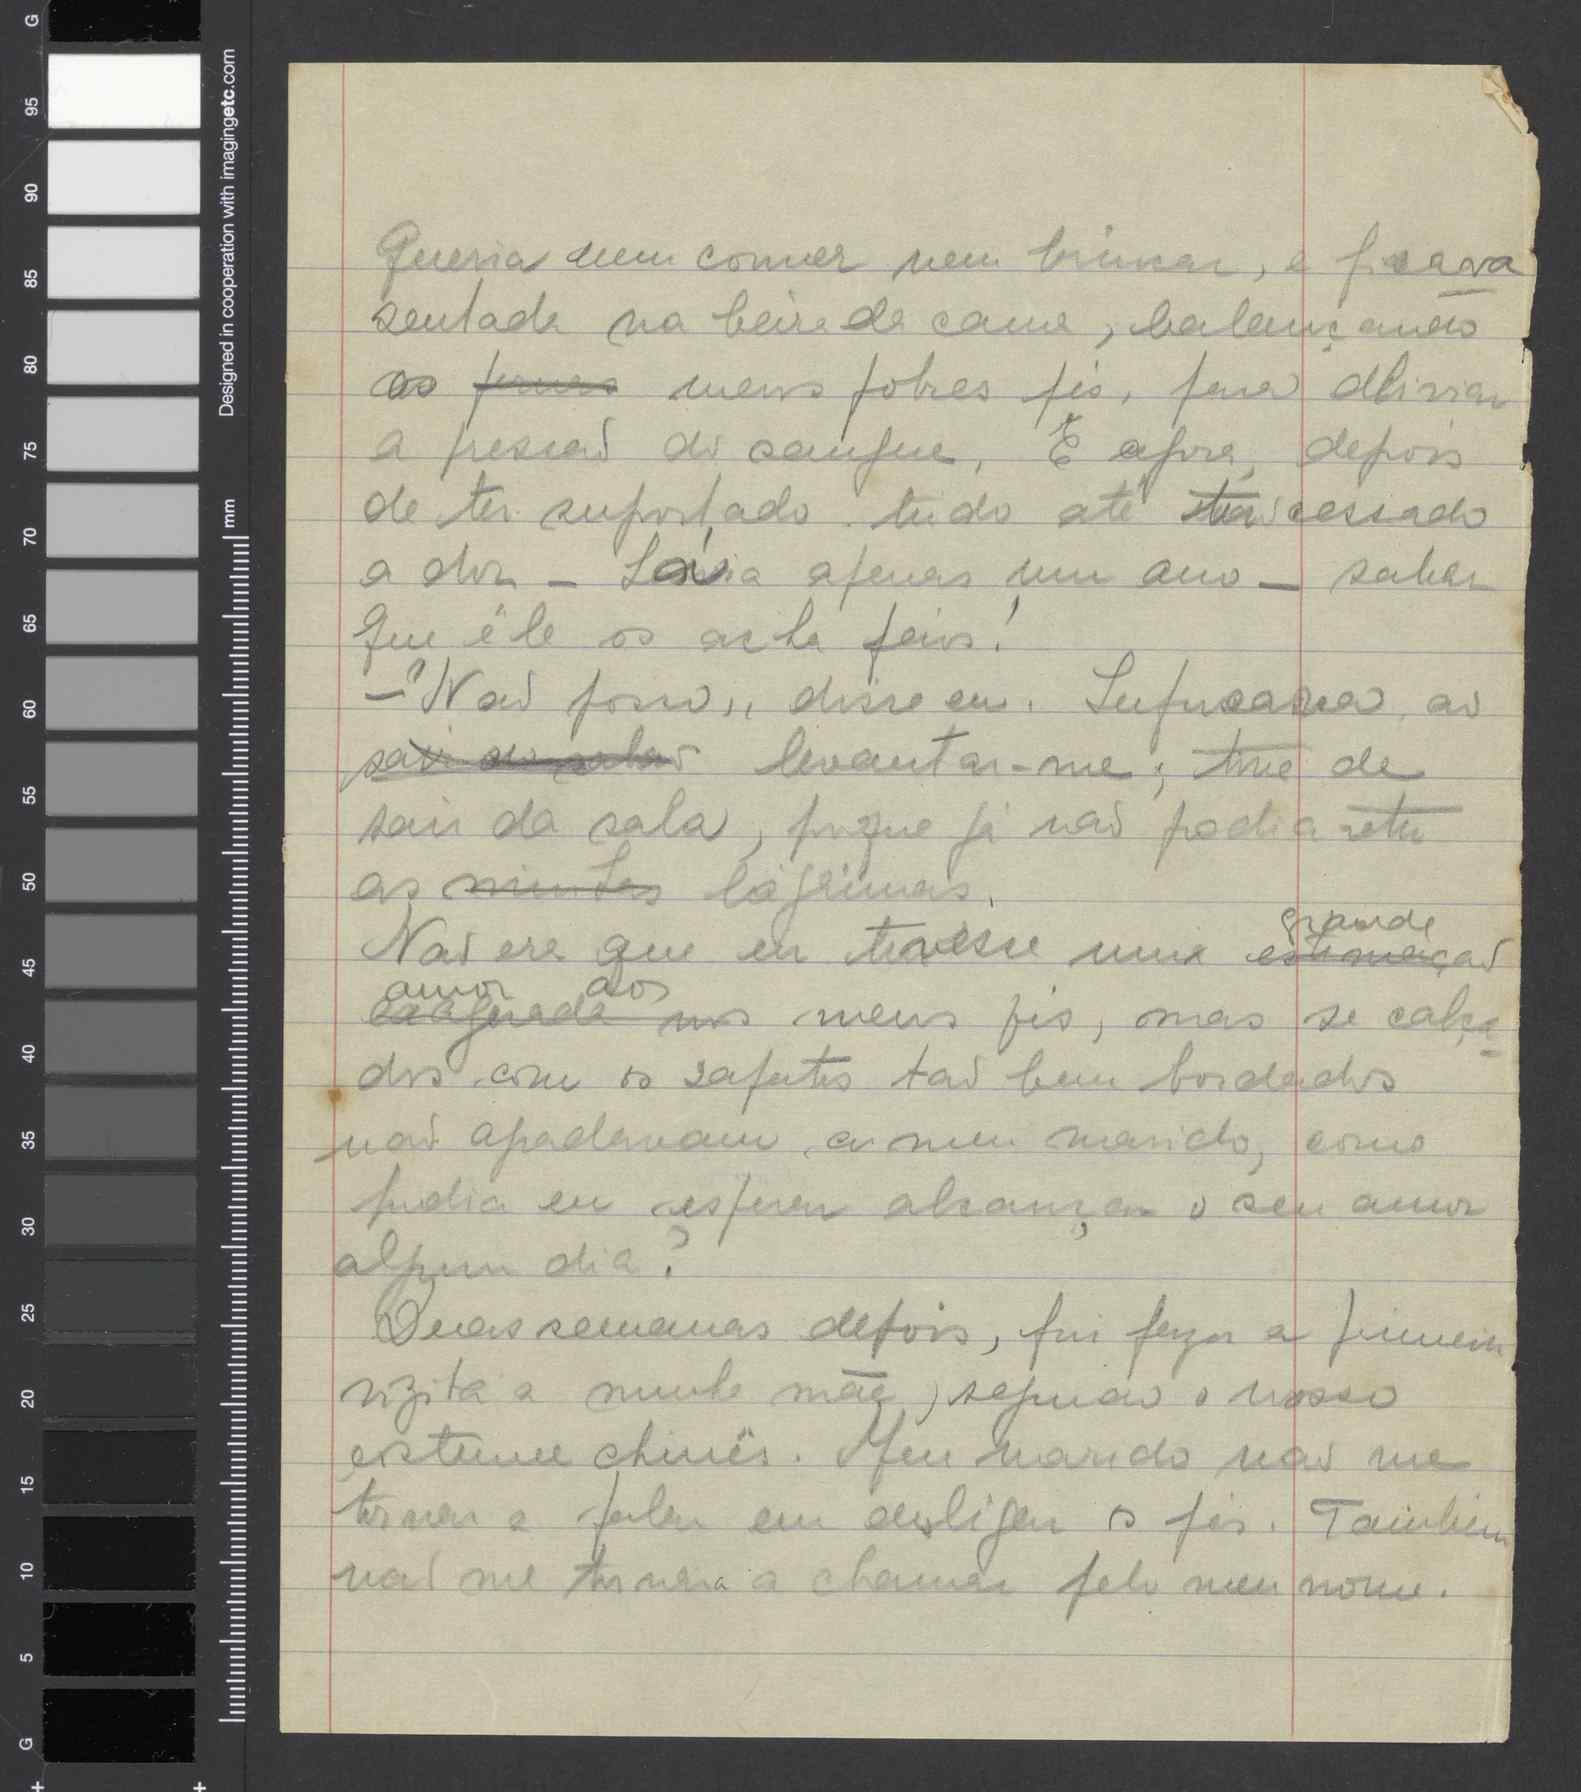 Queria nem comer nem brincar, e ficava
sentada na beira da cama, balançando
os pernas meus pobres pés, para aliviar
a pressaõ do sangue. E agora, depois
de ter suportado tudo até ter cessado
a dor – havia apenas um ano – saber
que êle os acha feios!
– "Naõ posso", disse eu. Sufocava, ao
sair do salaõ levantar-me; tive de
sair da sala, porque já naõ podia reter
as minhas lágrimas.
grande
Naõ era que eu tivesse uma estimaçaõ
amor aos
exagerada nos meus pés, mas se calça
dos com os sapatos taõ bem bordados
naõ agradavam a meu marido, como
podia eu esperar alcançar o seu amor
algum dia?
Duas semanas depois, fui fazer a primeira
vizita a minha mãe, segundo o nosso
costume chinês. Meu marido naõ me
tornou a falar em desligar os pés. Tambem
naõ me tornara a chamar pelo meu nome.
G
95
90
85
80
75
70
65
60
55
50
45
40
35
30
25
20
15
10
5
G
Designed in cooperation with imagingetc.com
mm